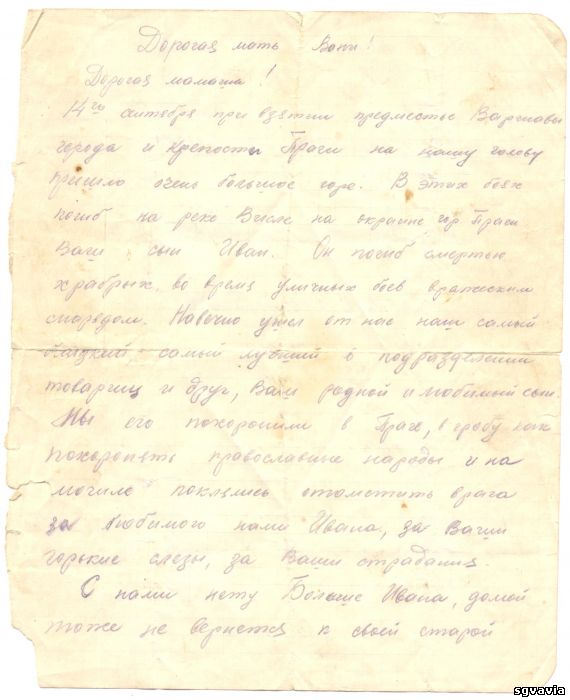 Дорогая мать Вани!
Дорогая мамаша!
14го сентября при взятии предместье Варшавы
города и крепости Праги на нашу голову
пришло очень большое горе. В этих боях
погиб на реке Висле на окраине гор Праги
Ваш сын Иван. Он погиб смертью
храбрых, во время уличных боев вражеским
снарядом. Навечно ушел от нас наш самый
близкий, самый лучший в подразделении
товарищ и друг, Ваш родной и любимый сын.
Мы его похоронили в Праге, в гробу как
похоронять православные народы и на
могиле поклялись отомстить врага
за любимого нами Ивана, за Ваши
горькие слезы, за Ваши страдания.
С нами нету Больше Ивана, домой
тоже не вернется к своей старой
sgvavia